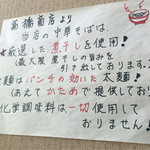 髙橋商店より
当店の中華そばは、
★厳選した煮干しを使用!
(最大限煮干しの旨みを
引き出しております。)
★麺はパンチの効いた太麺!
(あえてかためで提供しており
化学調味料は一切使用して
おりません!